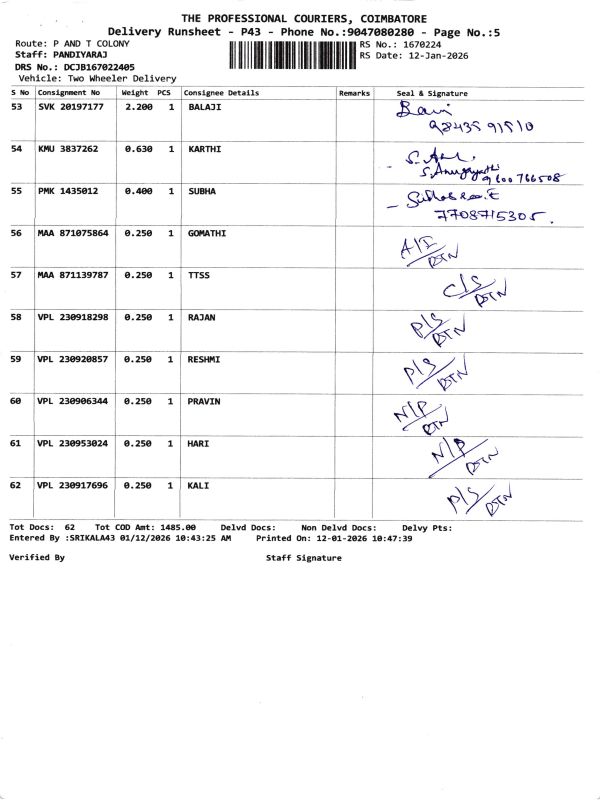 THE PROFESSIONAL COURIERS, COIMBATORE
Delivery Runsheet - P43 - Phone No.:9047080280 - Page No.:5
Route: P AND T COLONY
Staff: PANDIYARAJ
DRS No.: DCJB167022405
Vehicle: Two Wheeler Delivery
RS No.: 1670224
RS Date: 12-Jan-2026
S No Consignment No Weight PCS Consignee Details Remarks Seal & Signature
53 SVK 20197177 2.200 1 BALAJI
54 KMU 3837262 0.630 1 KARTHI
9600766508
55 PMK 1435012 0.400 1 SUBHA
7708715305.
56 MAA 871075864 0.250 1 GOMATHI A/I/RTN
57 MAA 871139787 0.250 1 TTSS C/S/RTN
58 VPL 230918298 0.250 1 RAJAN P/S/RTN
59 VPL 230920857 0.250 1 RESHMI P/S/RTN
60 VPL 230906344 0.250 1 PRAVIN N/P/RTN
61 VPL 230953024 0.250 1 HARI N/P/RTN
62 VPL 230917696 0.250 1 KALI P/S/RTN
Tot Docs: 62 Tot COD Amt: 1485.00 Delvd Docs: Non Delvd Docs: Delvy Pts:
Entered By :SRIKALA43 01/12/2026 10:43:25 AM Printed On: 12-01-2026 10:47:39
Verified By Staff Signature